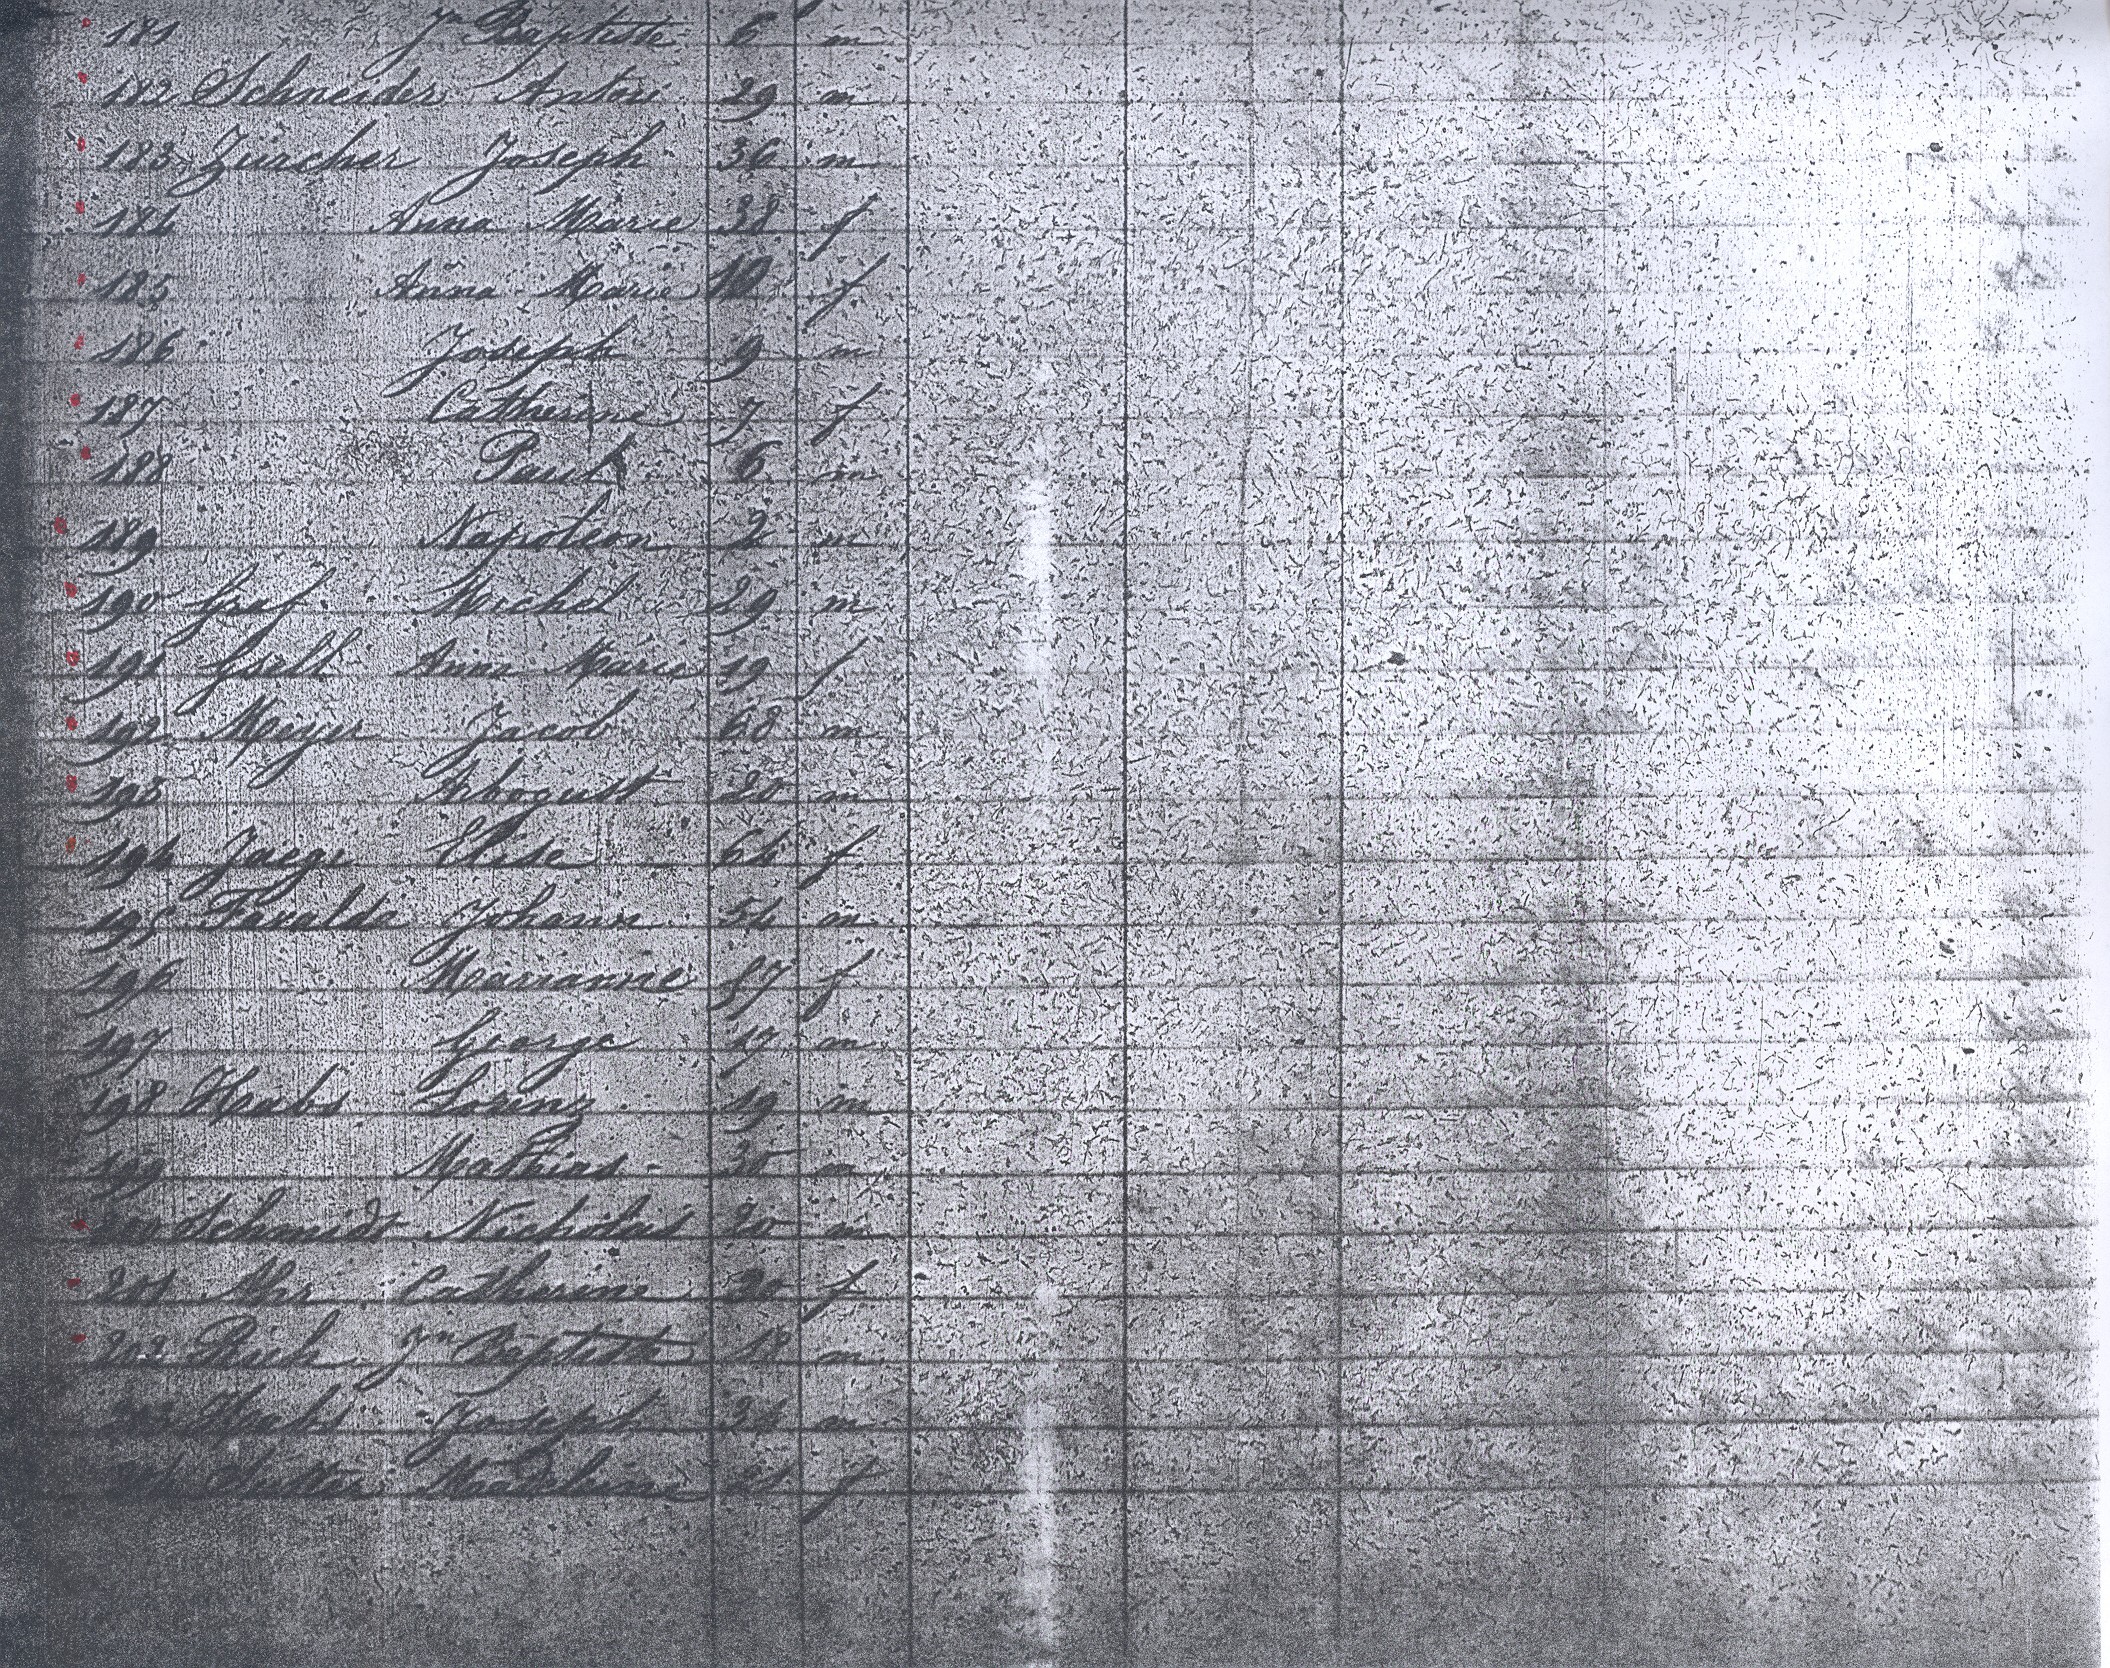 181 Jn Baptiste 6 m
182 Schneider Antoni 29 m
183 Zürcher Joseph 36 m
184 Anna Marie 38 f
185 Anna Marie 10 f
186 Joseph 9 m
187 Catherine 7 f
188 Paul 6 m
189 Napoleon 2 m
190 Graf Michel 29 m
191 Anna Marie 19 f
192 Meyer Jacob 68 m
193 Arbogust 20 m
194 Jaegi Elise 64 f
195 Johann 54 m
196 Marianne 57 f
197 George 17 m
198 Habs Lorenz 19 m
199 Mathias 30 m
200 Schmidt Nicholas 20 m
201 Catherine 20 f
202 Jn Baptiste 18 m
203 Habs Joseph 34 m
204 Sutter Madeline 21 f